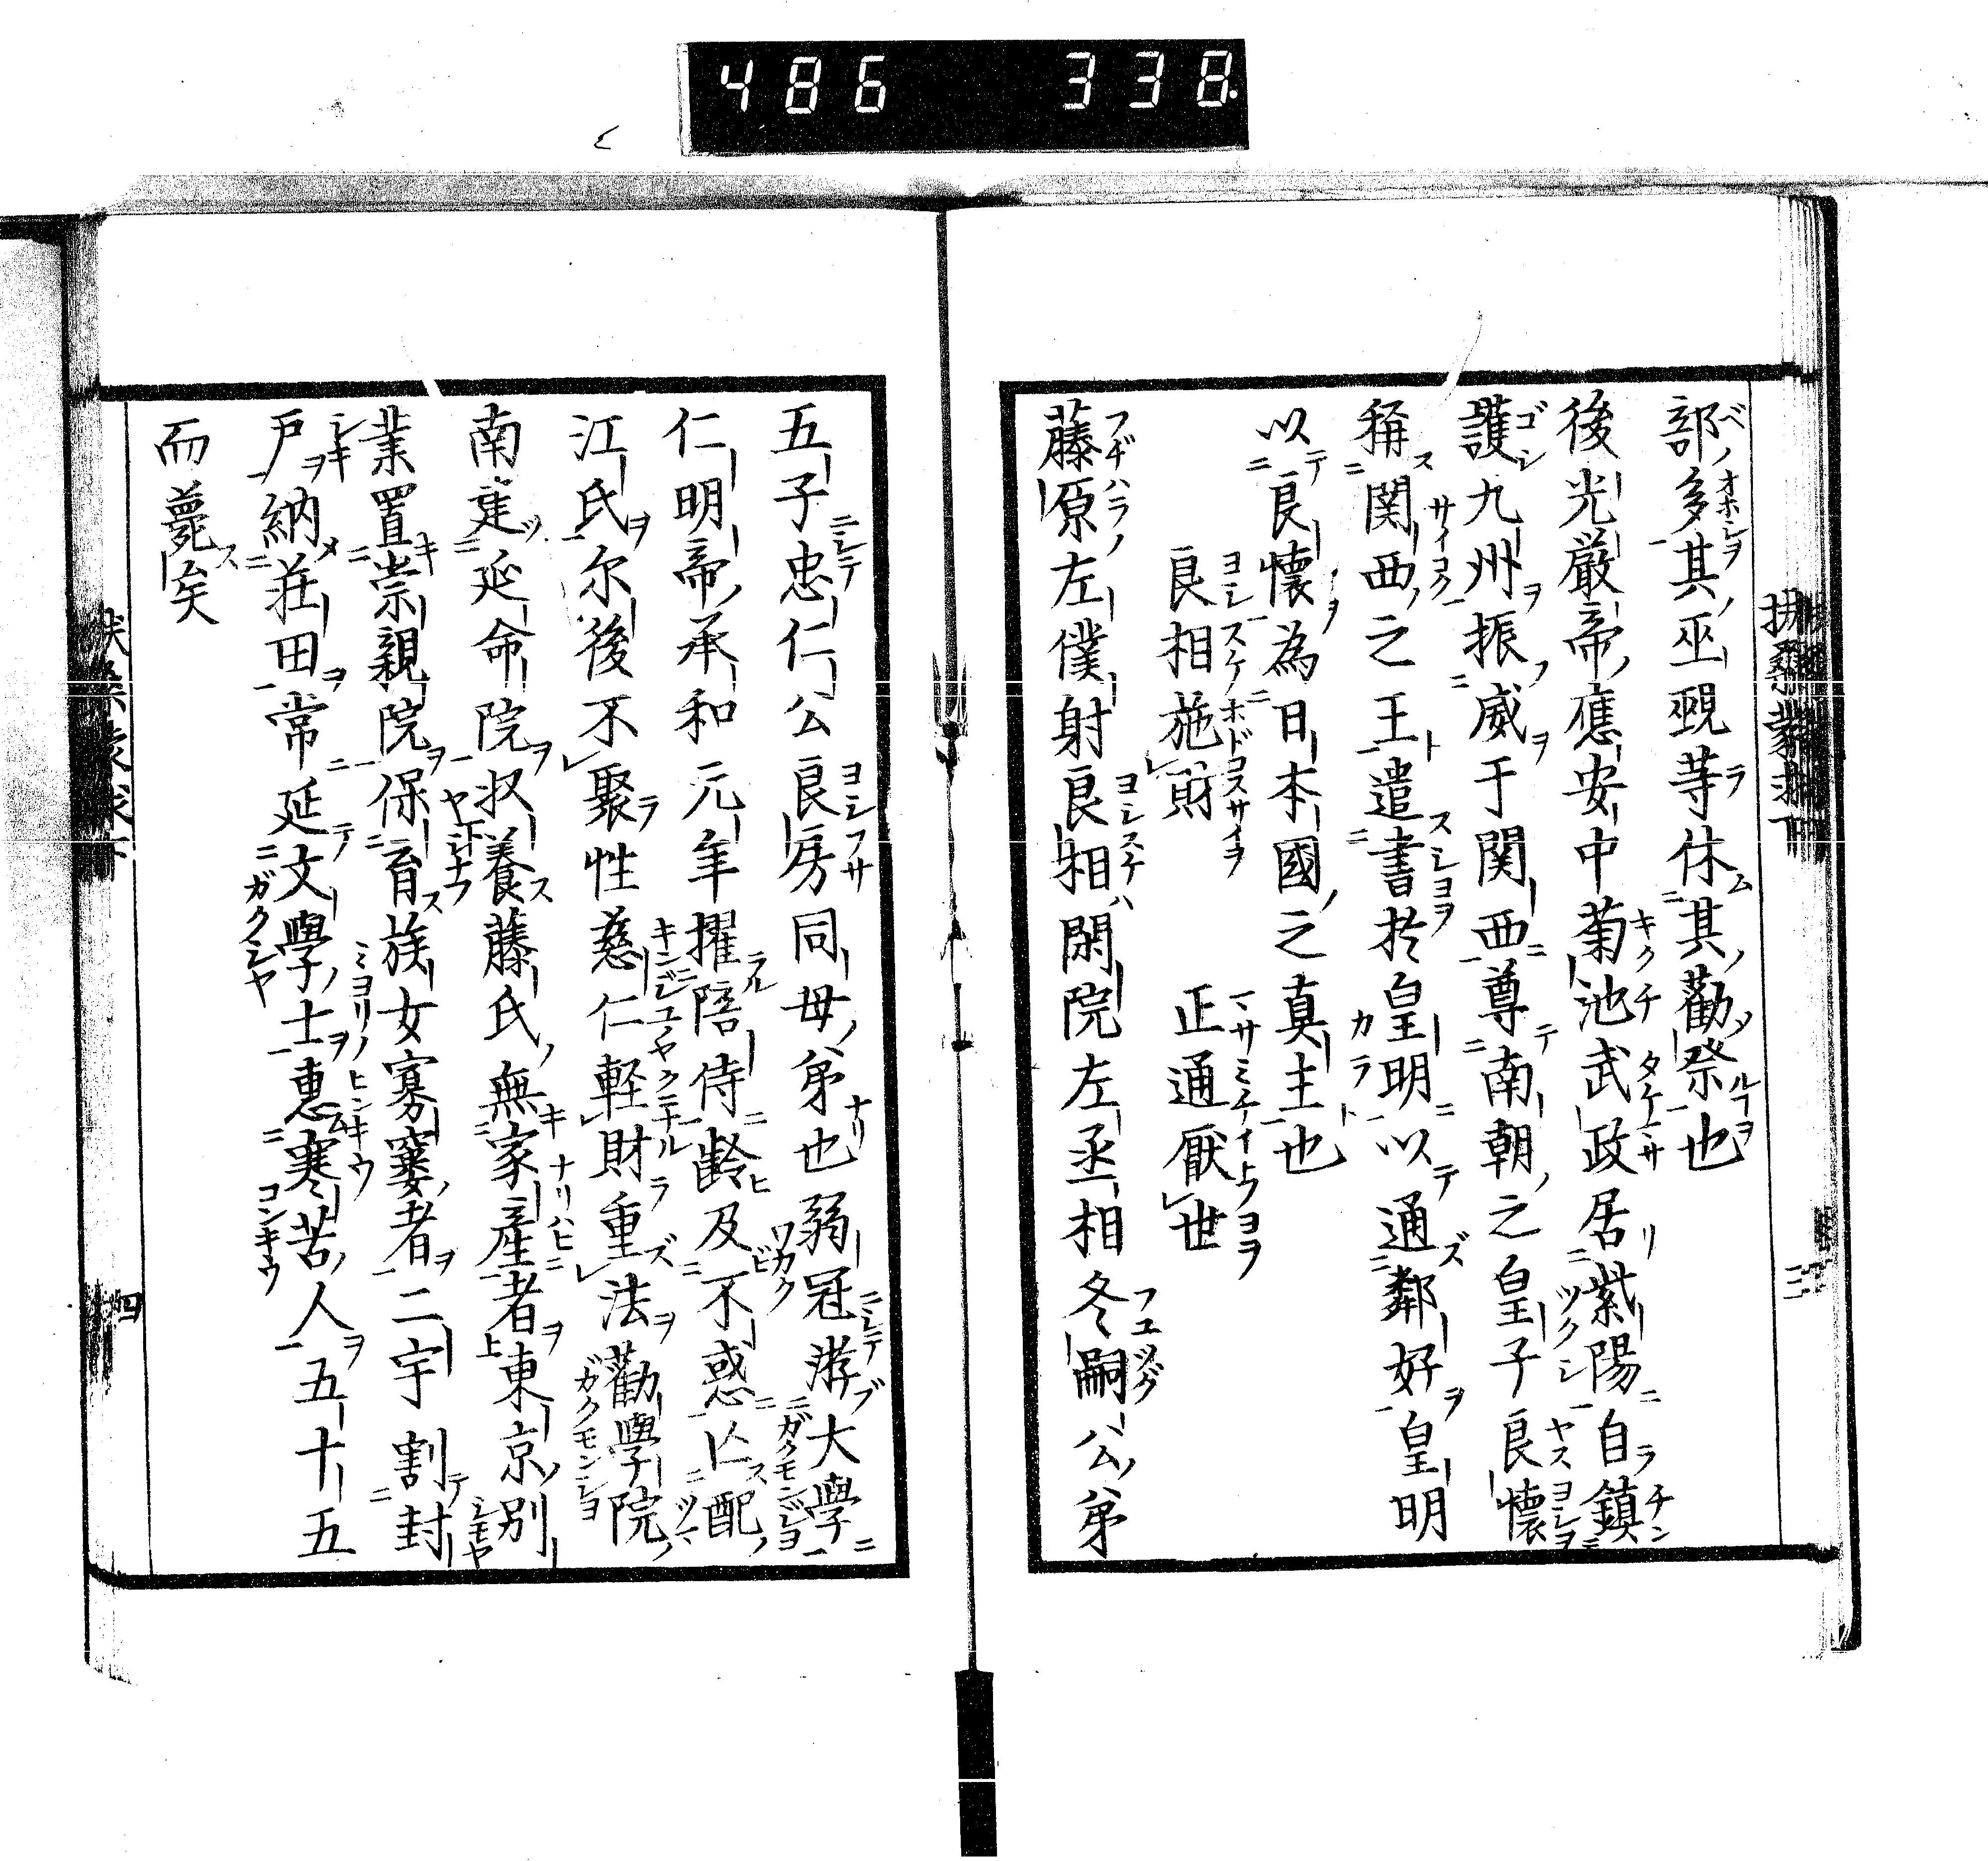 486 338
部多其巫覡等休其勸祭也
後光嚴帝應安中菊池武政居紫陽自鎮
護九州振威于関西尊南朝之皇子良懷
稱関西之王遣書於皇明以通鄰好皇明
以良懷為日本國之真主也
良相施財 正通厭世
藤原左僕射良相閑院左丞相冬嗣公弟
五子忠仁公良房同母弟也弱冠游大學
仁明帝承和元年擢陪侍齡及不惑亾配
江氏尓後不聚性慈仁軽財重法勸學院
南建延命院収養藤氏無家產者東京別
業置崇親院保育族女寡窶者二宇割封
戸納荘田常延文學士惠寒苦人五十五
而薨矣
四